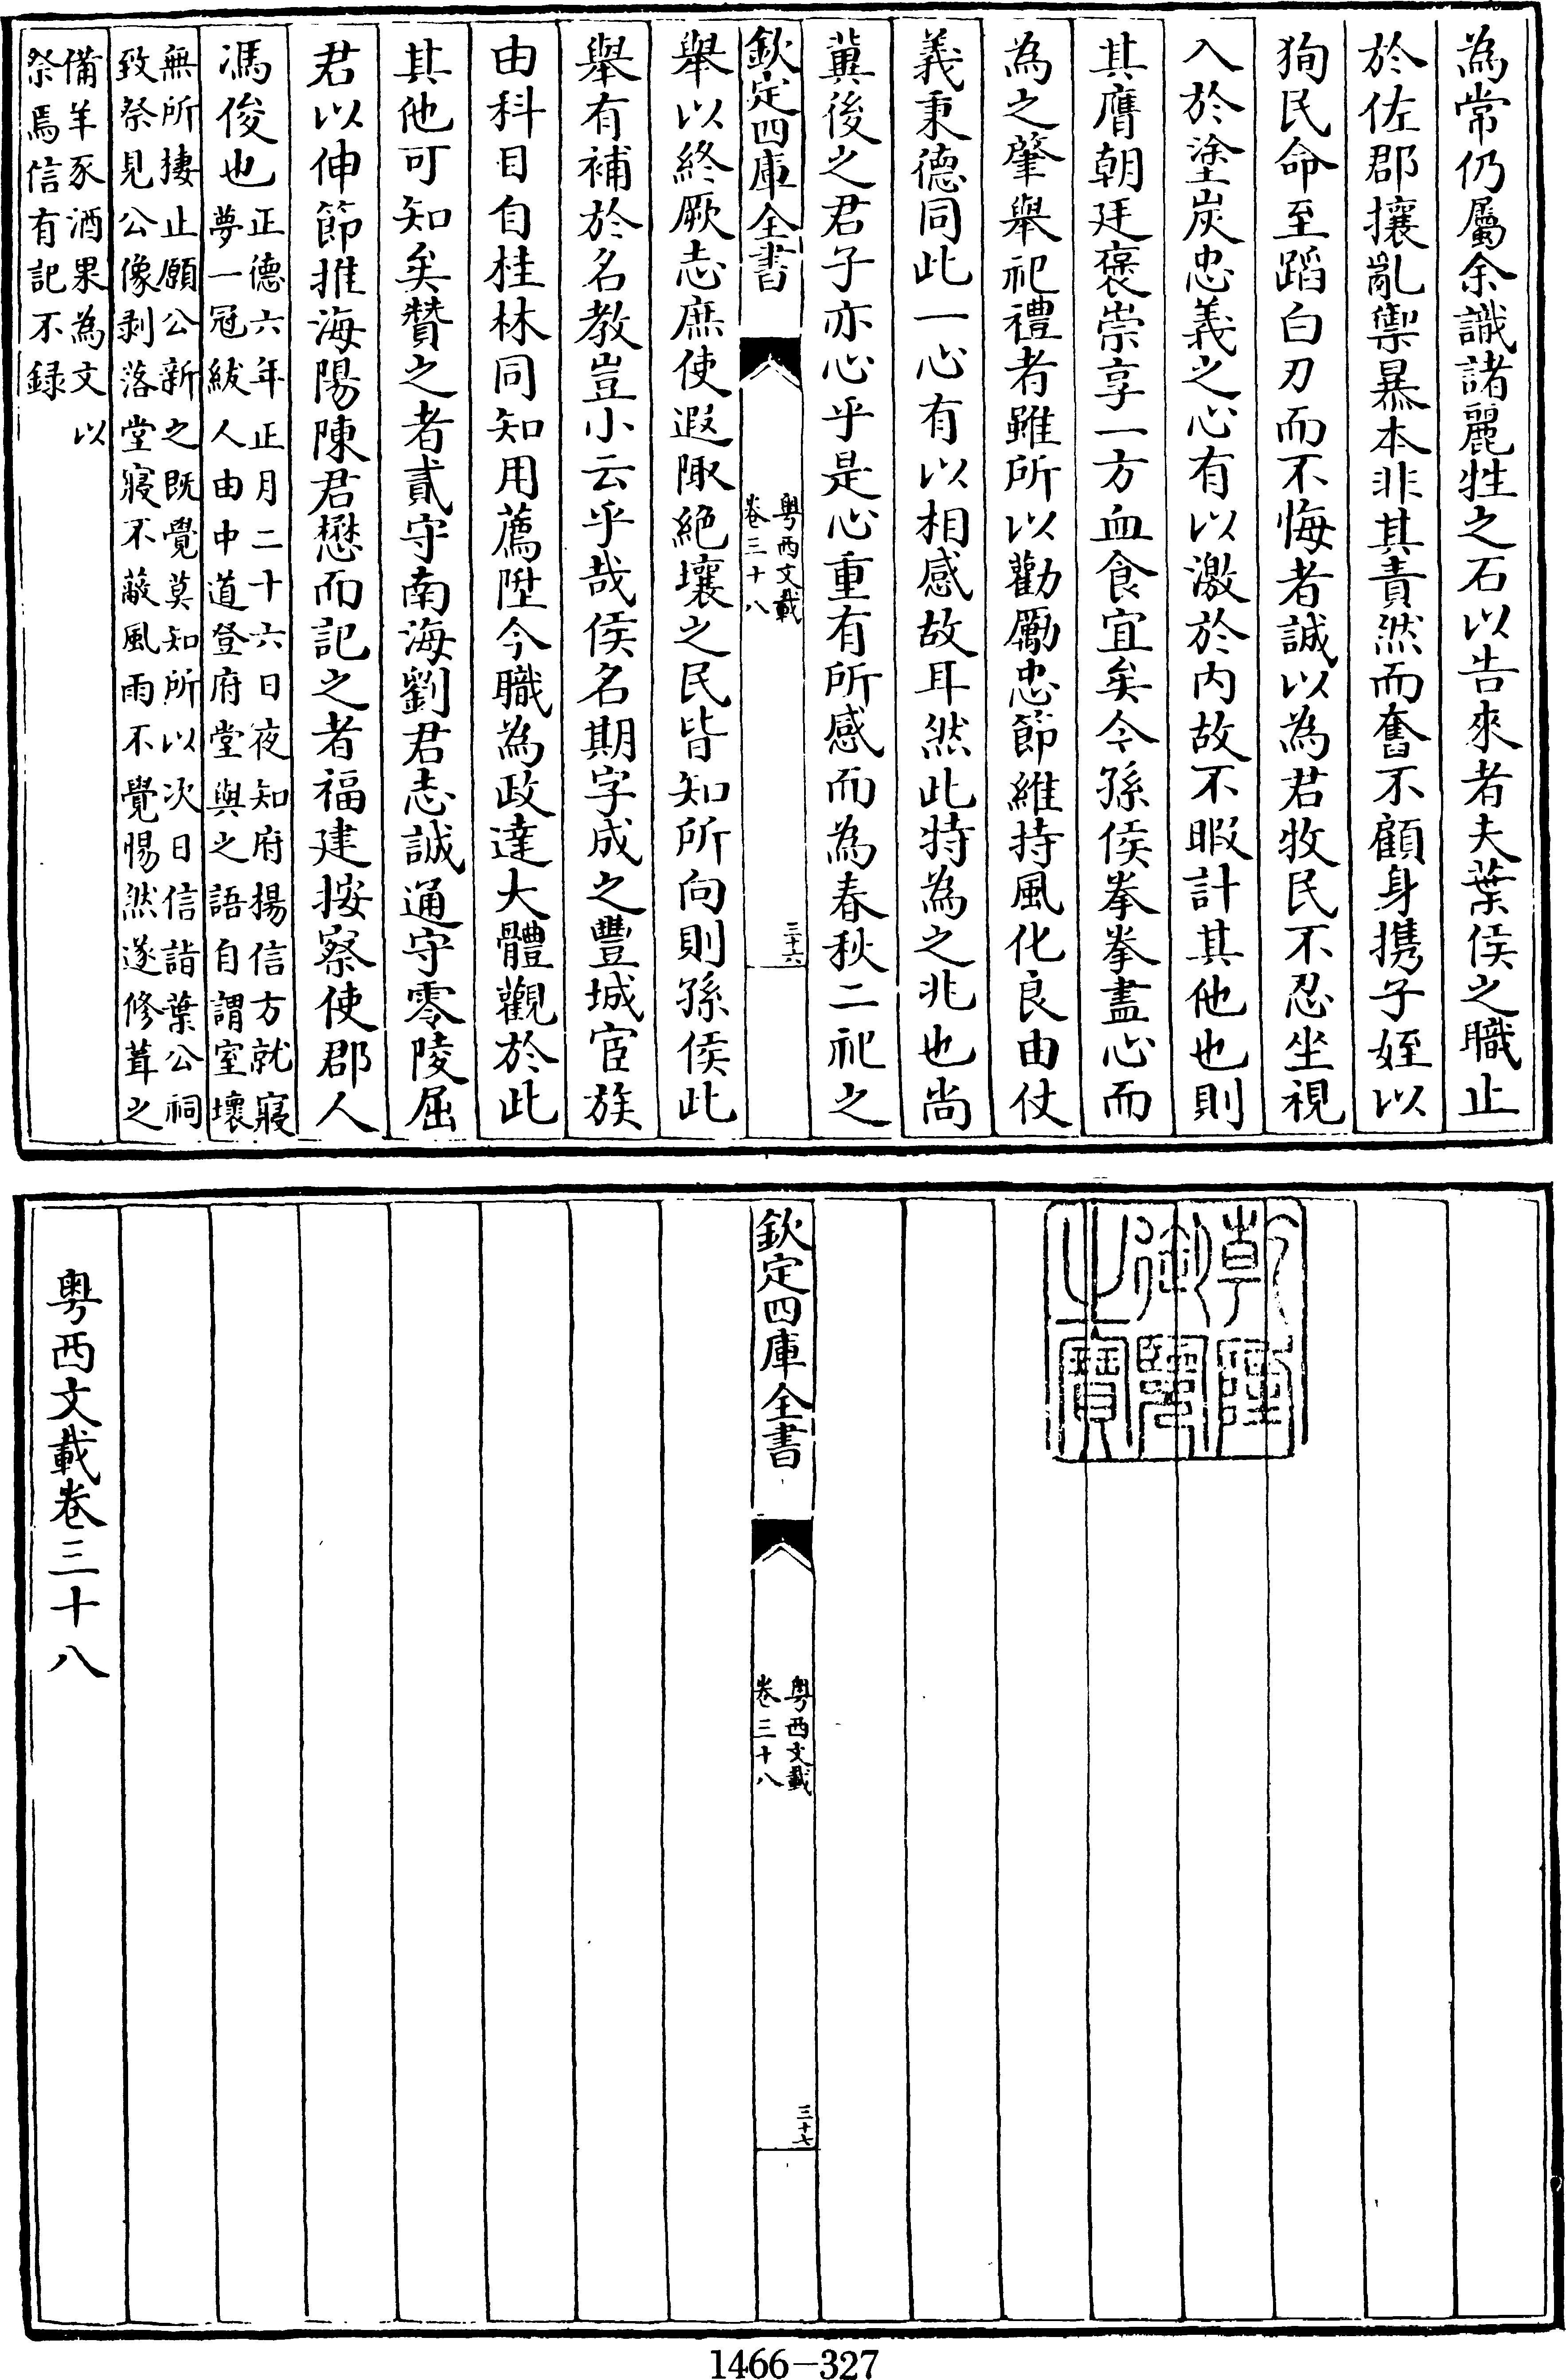 為常仍屬余識諸麗牲之石以告來者夫葉侯之職止
於佐郡攘亂禦暴本非其責然而奮不顧身携子姪以
狥民命至蹈白刃而不悔者誠以為君牧民不忍坐視
入於塗炭忠義之心有以激於内故不暇計其他也則
其膺朝廷褒崇享一方血食宜矣今孫侯拳拳盡心而
為之肇舉祀禮者雖所以勸勵忠節維持風化良由仗
義秉德同此一心有以相感故耳然此特為之兆也尚
冀後之君子亦心乎是心重有所感而為春秋二祀之
欽定四庫全書
粤西文載
卷三十八
三十六
舉以終厥志庶使遐陬絶壤之民皆知所向則孫侯此
舉有補於名教豈小云乎哉侯名期字成之豐城宦族
由科目自桂林同知用薦陞今職為政達大體觀於此
其他可知矣贊之者貳守南海劉君志誠通守零陵屈
君以伸節推海陽陳君懋而記之者福建按察使郡人
馮俊也
正德六年正月二十六日夜知府揚信方就寢
夢一冠紱人由中道登府堂與之語自謂室壞
無所棲止願公新之既覺莫知所以次日信詣葉公祠
致祭見公像剥落堂寢不蔽風雨不覺惕然遂修葺之
備羊豕酒果為文以
祭焉信有記不録
乾隆
御覽
之寶
欽定四庫全書
粤西文載
卷三十八
三十七
粤西文載卷三十八
1466-327